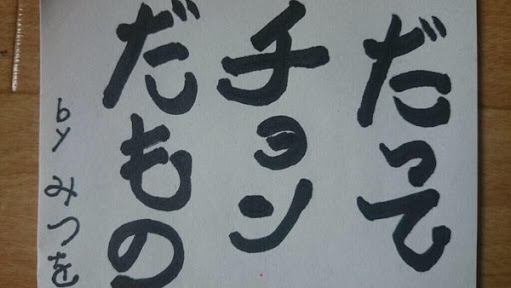 だって
チョン
だもの
by みつを